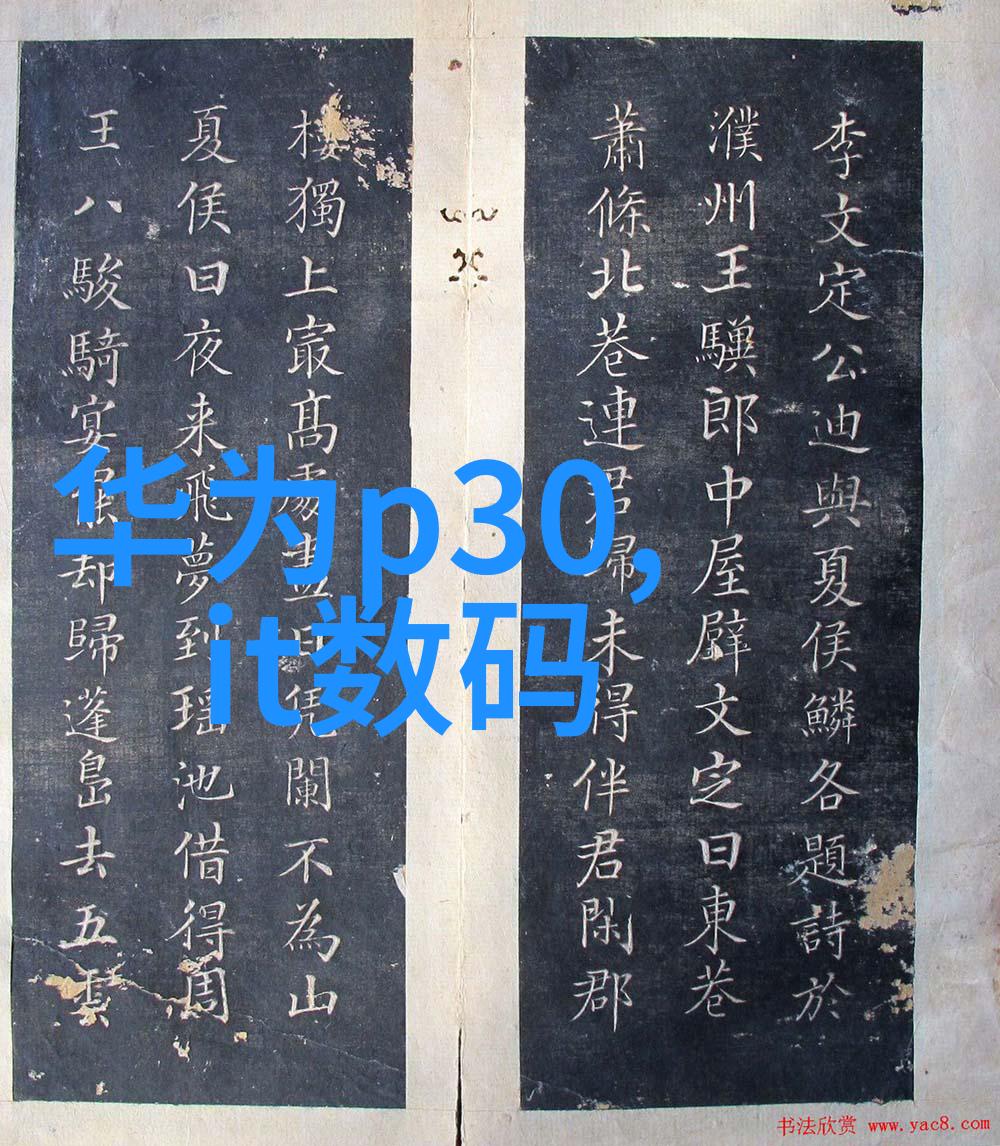 李文定公迪與夏侯鱗各題詩於
濮州王驥郎中屋壁文定曰東巷
蕭條北巷連君歸未得伴君閑郡
樓獨上㝡髙處盡日凭闌不為山
夏侯曰夜来飛夢到瑶池借得周
王八駿騎宴罷却歸蓬島去五雲
华为p30,
it数码
书法欣赏 www.yac8.com